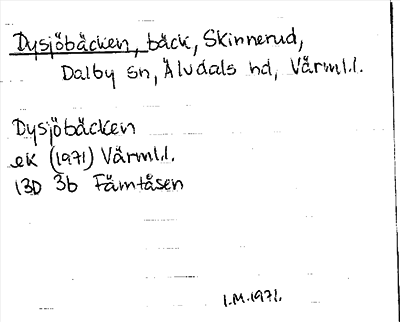 Dysjöbäcken, bäck, Skinnerud,
Dalby sn, Älvdals hd, Värml.l.
Dysjöbäcken
ek (1971) Värml.l.
13D 3b Fämtåsen
I.M.1971.